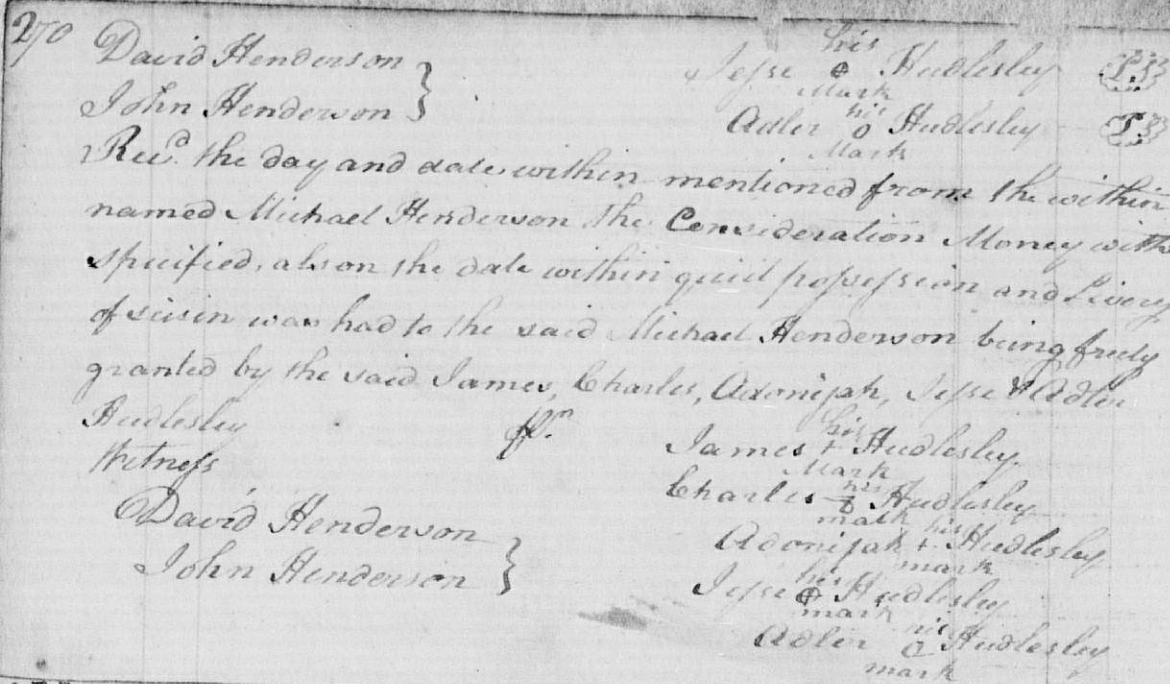 270
David Henderson } Jesse his Mark Hudlesley
John Henderson } Adler his O Mark Hudlesley
Recd. the day and date within mentioned from the within
named Michael Henderson the Consideration Money with
specified, also on the date within quiet possession and Livery
of seisin was had to the said Michael Henderson being freely
granted by the said James, Charles, Adonijah, Jesse & Adler
Hudlesley
James his + Mark Hudlesley
Witness
Charles his mark Hudlesley
David Henderson }
Adonijah his + mark Hudlesley
John Henderson }
Jesse his mark Hudlesley
Adler his O mark Hudlesley